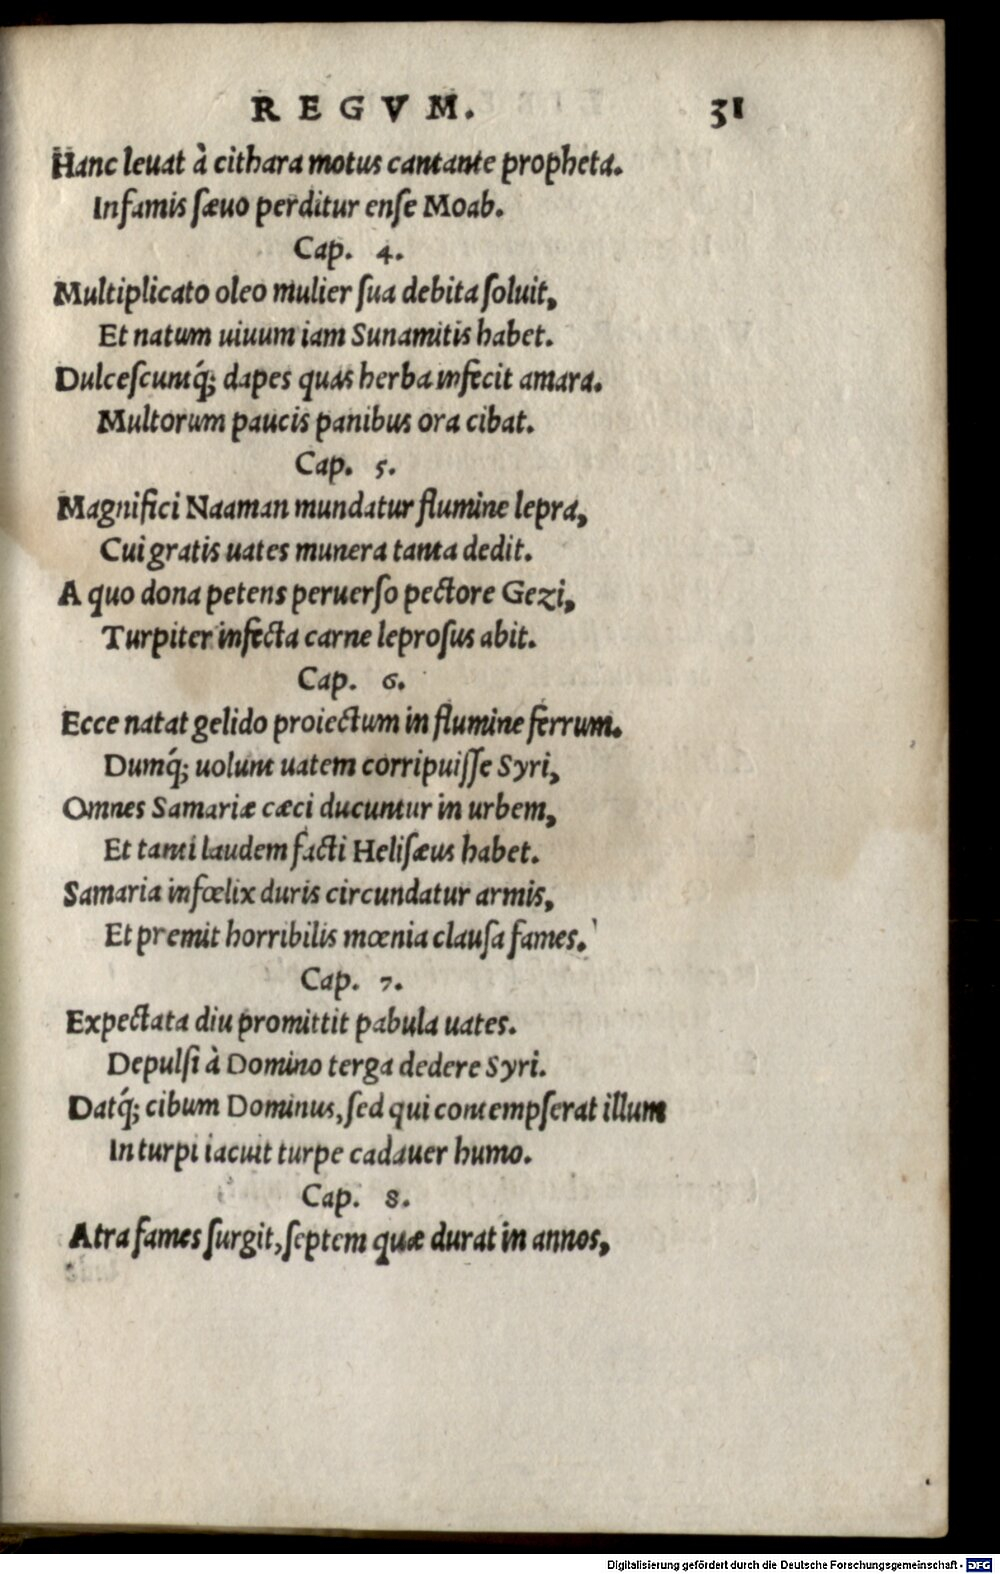 REGVM. 31
Hanc leuat à cithara motus cantante propheta.
Infamis sæuo perditur ense Moab.
Cap. 4.
Multiplicato oleo mulier sua debita soluit,
Et natum uiuum iam Sunamitis habet.
Dulcescuntq́; dapes quas herba infecit amara.
Multorum paucis panibus ora cibat.
Cap. 5.
Magnifici Naaman mundatur flumine lepra,
Cui gratis uates munera tanta dedit.
A quo dona petens peruerso pectore Gezi,
Turpiter infecta carne leprosus abit.
Cap. 6.
Ecce natat gelido proiectum in flumine ferrum.
Dumq́; uolunt uatem corripuisse Syri,
Omnes Samariæ cæci ducuntur in urbem,
Et tanti laudem facti Helisæus habet.
Samaria infœlix duris circundatur armis,
Et premit horribilis mœnia clausa fames.
Cap. 7.
Expectata diu promittit pabula uates.
Depulsi à Domino terga dedere Syri.
Datq́; cibum Dominus, sed qui contempserat illum
In turpi iacuit turpe cadauer humo.
Cap. 8.
Atra fames surgit, septem quæ durat in annos,
Digitalisierung gefördert durch die Deutsche Forschungsgemeinschaft - DFG